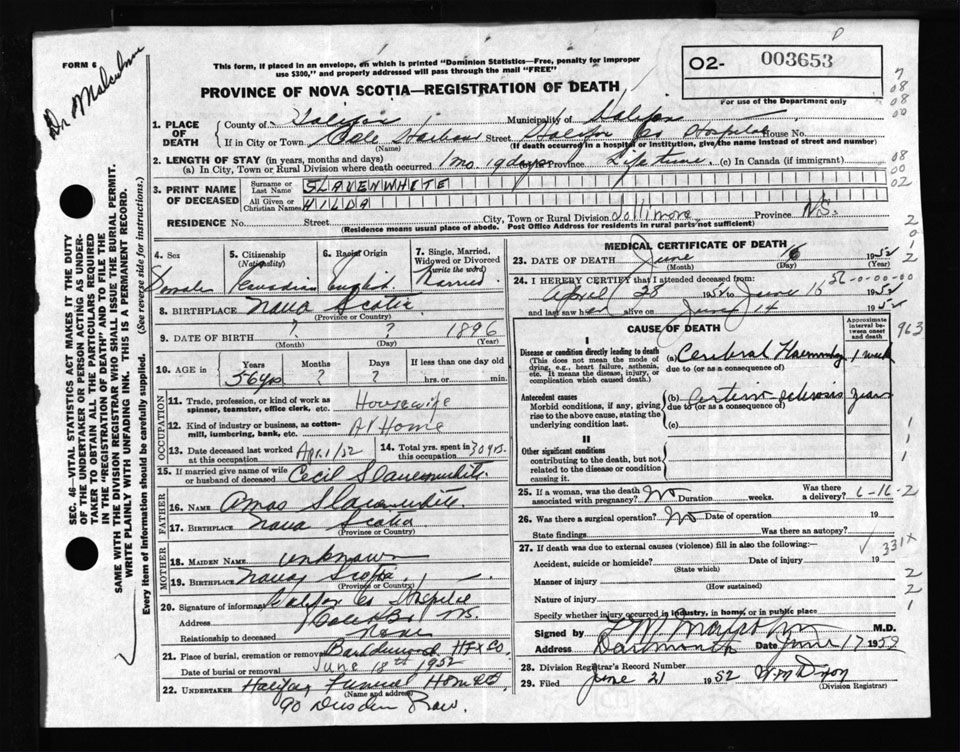 FORM 6
Dr Malcolm
This form, if placed in an envelope, on which is printed "Dominion Statistics—Free, penalty for improper
use $300," and properly addressed will pass through the mail "FREE"
PROVINCE OF NOVA SCOTIA—REGISTRATION OF DEATH
O2- 003653
For use of the Department only
1. PLACE OF DEATH
County of Halifax Municipality of Halifax
If in City or Town Cole Harbour Street Halifax Co Hospital House No.
(Name) (If death occurred in a hospital or institution, give the name instead of street and number)
2. LENGTH OF STAY (in years, months and days)
(a) In City, Town or Rural Division where death occurred 1 mo. 19 days Province Lifetime. (c) In Canada (if immigrant)
3. PRINT NAME OF DECEASED
Surname or Last Name SLAVENWHITE
All Given or Christian Names HILDA
RESIDENCE No. Street City, Town or Rural Division Jollimore Province N.S.
(Residence means usual place of abode. Post Office Address for residents in rural parts not sufficient)
4. Sex Female
5. Citizenship (Nationality) Canadian
6. Racial Origin English
7. Single, Married, Widowed or Divorced (write the word) Married
8. BIRTHPLACE Nova Scotia
(Province or Country)
9. DATE OF BIRTH ? ? 1896
(Month) (Day) (Year)
10. AGE in Years 56 yrs Months ? Days ? If less than one day old hrs. or min.
OCCUPATION
11. Trade, profession, or kind of work as spinner, teamster, office clerk, etc. Housewife
12. Kind of industry or business, as cotton-mill, lumbering, bank, etc. At Home
13. Date deceased last worked at this occupation Apr. 1/52
14. Total yrs. spent in this occupation 30 yrs.
15. If married give name of wife or husband of deceased Cecil Slavenwhite
FATHER
16. NAME Amos Slavenwhite
17. BIRTHPLACE Nova Scotia
MOTHER
18. MAIDEN NAME unknown
19. BIRTHPLACE Nova Scotia
(Province or Country)
20. Signature of informant Halifax Co Hospital
Address N.S.
Relationship to deceased None
21. Place of burial, cremation or removal HFX Co.
Date of burial or removal June 18th 1952
22. UNDERTAKER Halifax Funeral Home
(Name and address)
90 Dresden Row.
MEDICAL CERTIFICATE OF DEATH
23. DATE OF DEATH June 16 1952
(Month) (Day)
24. I HEREBY CERTIFY that I attended deceased from
April 28 1952 to June 16 1952
and last saw her alive on June 14 1952
CAUSE OF DEATH
Approximate interval between onset and death
I
Disease or condition directly leading to death
(This does not mean the mode of dying, e.g., heart failure, asthenia, etc. It means the disease, injury, or complication which caused death.)
(a) Cerebral Haemorrhage 1 week
due to (or as a consequence of)
Antecedent causes
Morbid conditions, if any, giving rise to the above cause, stating the underlying condition last.
(b) Arterio sclerosis years
due to (or as a consequence of)
(c)
II
Other significant conditions
contributing to the death, but not related to the disease or condition causing it.
25. If a woman, was the death associated with pregnancy? No Duration weeks. Was there a delivery?
26. Was there a surgical operation? No Date of operation 19
State findings Was there an autopsy?
27. If death was due to external causes (violence) fill in also the following:—
Accident, suicide or homicide? Date of injury 19
(State which)
Manner of injury
(How sustained)
Nature of injury
Specify whether injury occurred in industry, in home, or in public place
Signed by M.D.
Address Dartmouth Date June 17 1952
28. Division Registrar's Record Number
29. Filed June 21 1952 W.M. Dixon
(Division Registrar)
6-16-2
963
331X
SEC. 46—VITAL STATISTICS ACT MAKES IT THE DUTY
OF THE UNDERTAKER OR PERSON ACTING AS UNDERTAKER
TO OBTAIN ALL THE PARTICULARS REQUIRED
IN THE "REGISTRATION OF DEATH" AND TO FILE THE
SAME WITH THE DIVISION REGISTRAR WHO SHALL ISSUE THE BURIAL PERMIT.
WRITE PLAINLY WITH UNFADING INK. THIS IS A PERMANENT RECORD.
Every item of information should be carefully supplied. (See reverse side for instructions.)